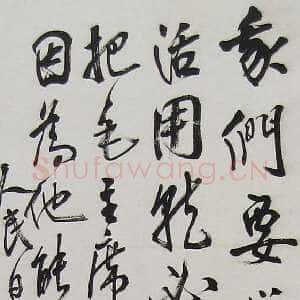 我們要
活用就必
把毛主席
因為他能
人民日
Shufawang.CN